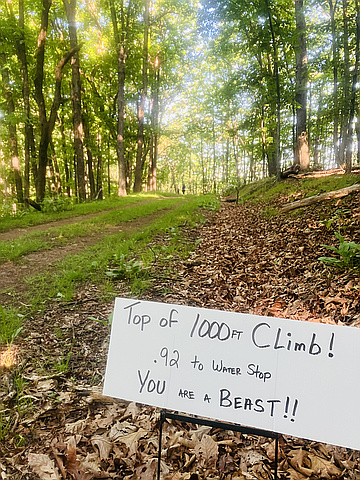 Top of 1000FT Climb!
.92 to Water Stop
You are a Beast!!